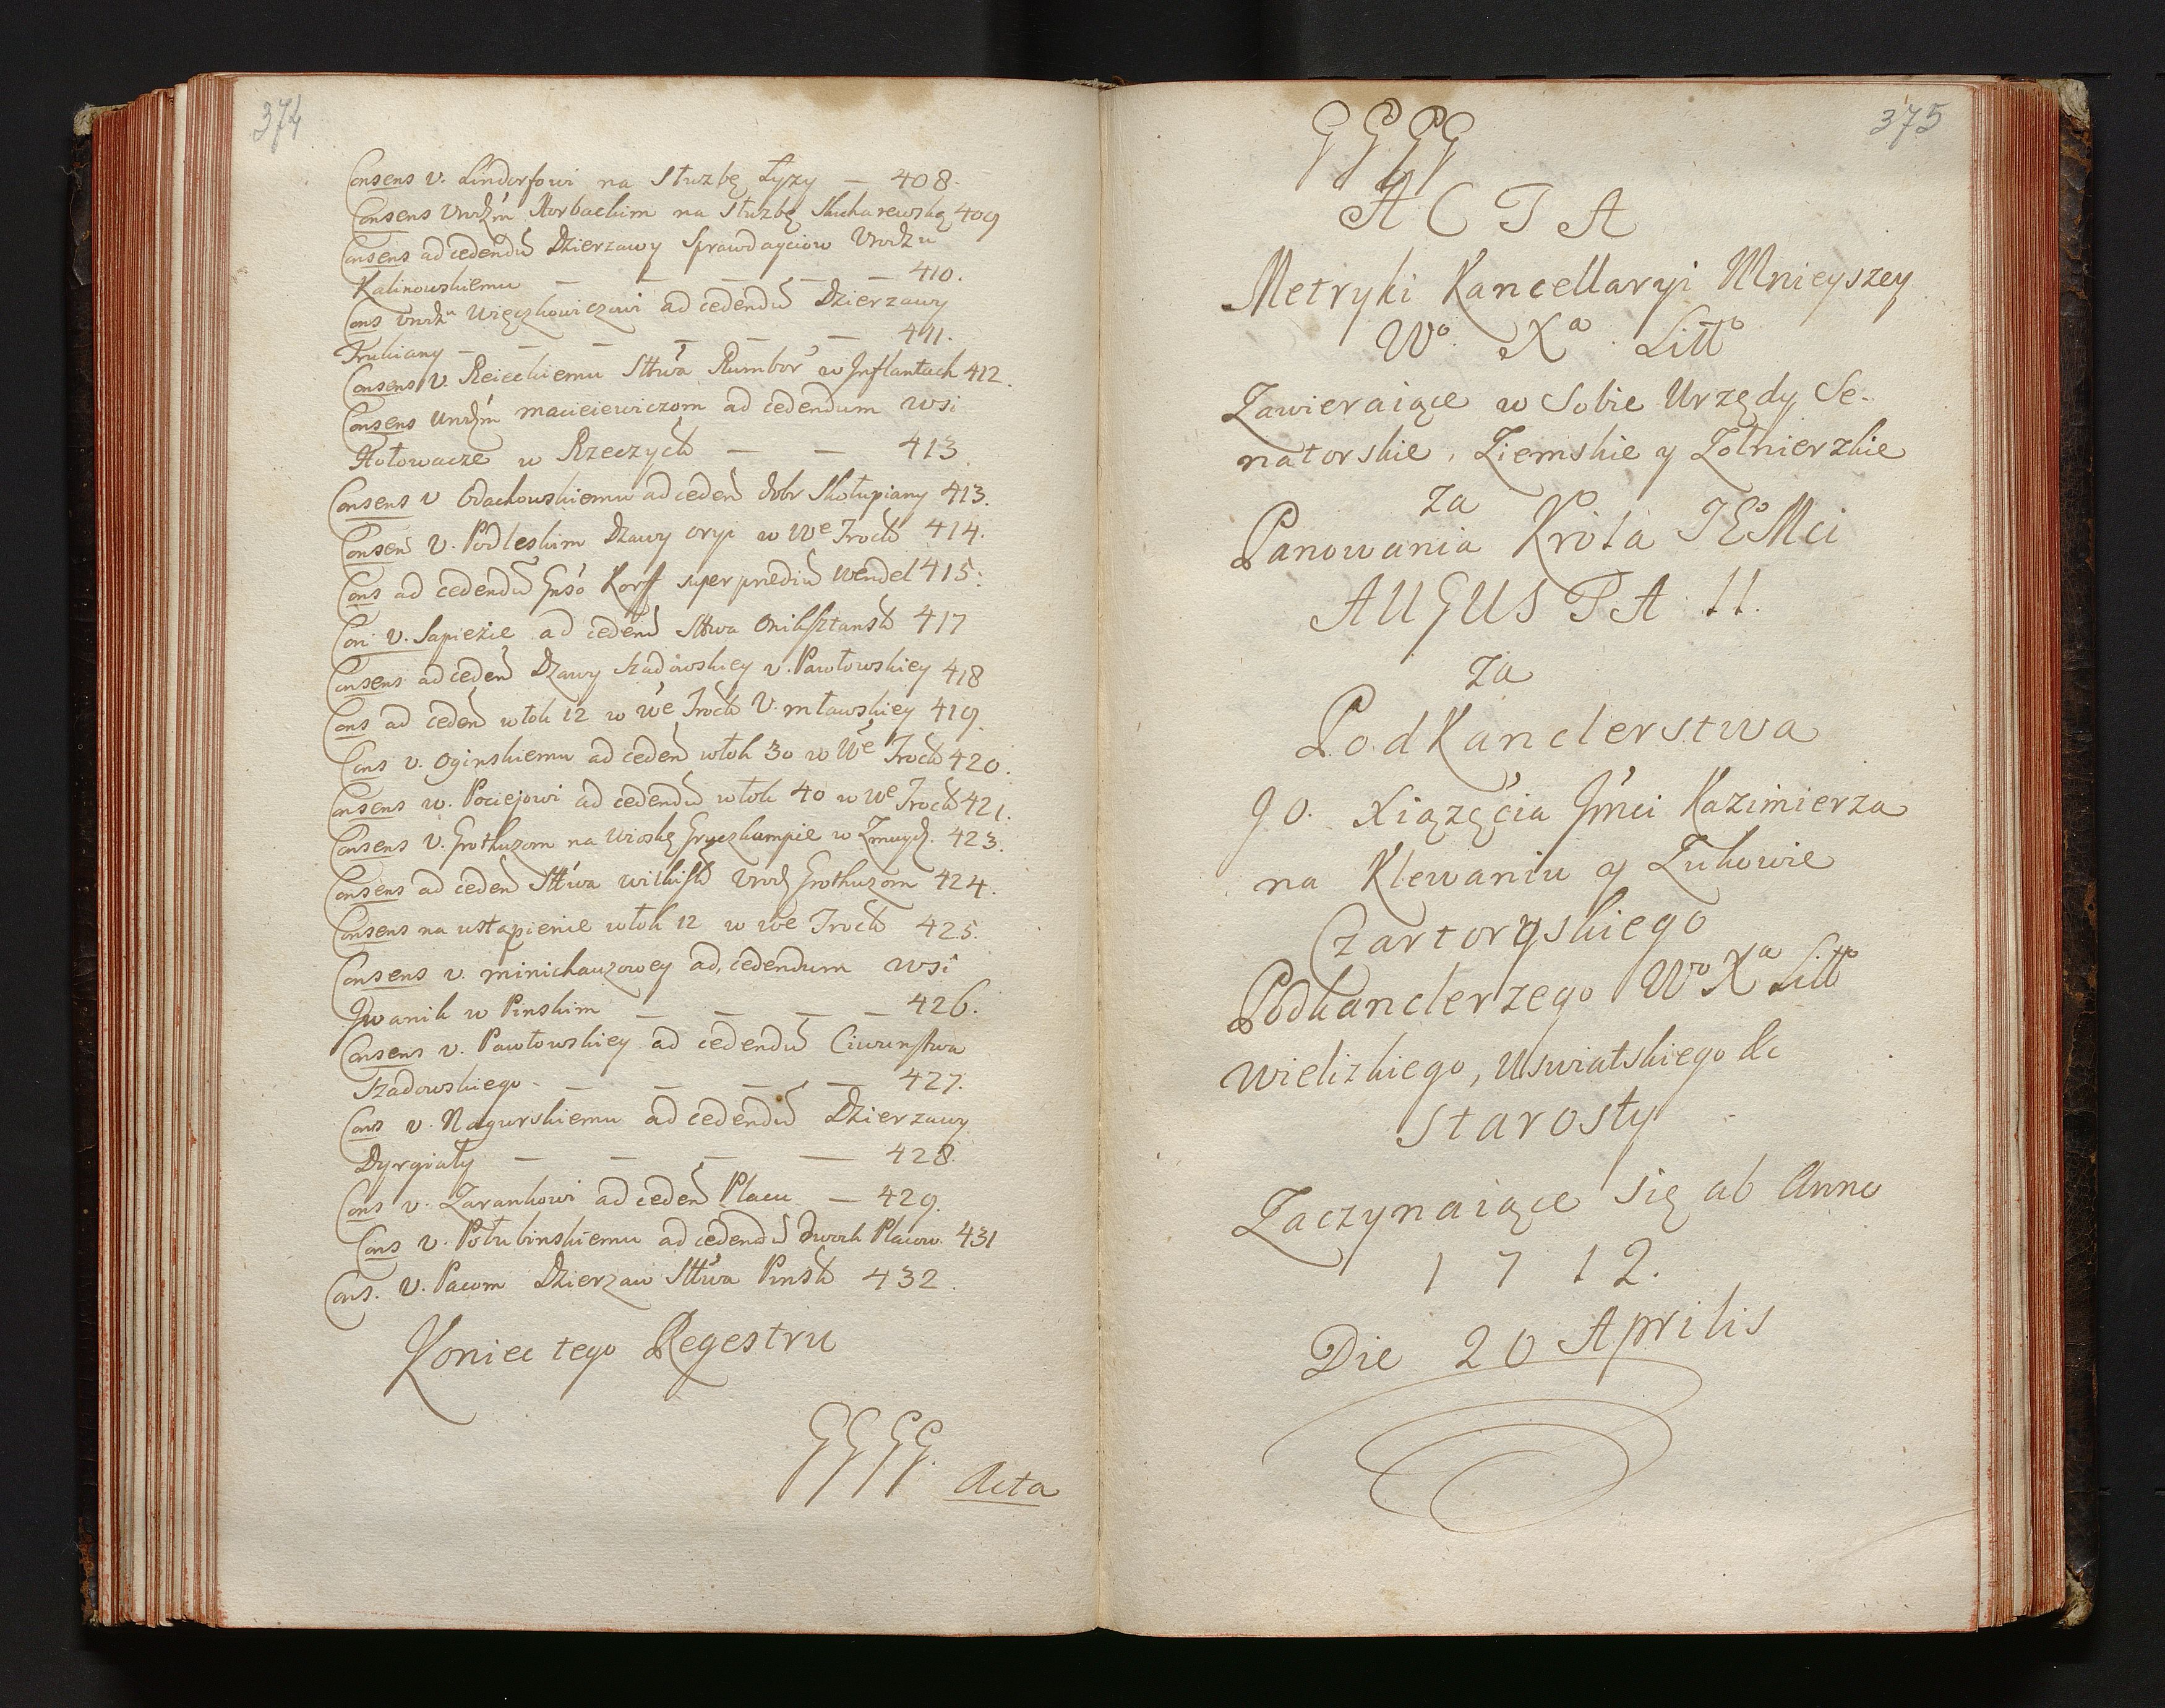 374
Consens v. Lindorfowi na Służbę Łyzy — 408.
Consens Urodzm Korbackim na Służbę Sucharewską 409
Consens ad cedendū Dzierzawy Sprawdayciow Urodzu
Kalinowskiemu — — — — — 410.
Cons Urodzu Więckowiczowi ad cedendū Dzierzawy
Trukiany — — — — — — 411.
Consens v. Reieckiemu Sttwa Rumbor w Jnflantach 412.
Consens Urodzm macieiewiczom ad cedendum wsi
Hołowacze w Rzeczyck — — 413
Consens v Odachowskiemu ad ceden dobr Skołupiany 413.
Consen v. Podleskim Dzawy oryi w We Trock 414.
Cons ad cedendū Gnso Korff super prediū Wendel 415.
Con v. Sapieżie ad ceden Sttwa Oniksztansk 417
Consens ad ceden Dzawy Szadowskiey v. Pawłowskiey 418
Cons ad ceden włok 12 w We Trock V. mławskiey 419.
Cons v. Oginskiemu ad ceden włok 30 w We Trock 420.
Consens w. Pociejowi ad cedendū włok 40 w We Trock 421.
Consens v. Grothuzom na wioskę Gryczkumpie w Zmuydz. 423.
Consens ad ceden Sttwa wilkisk Urodz Grothuzom 424.
Consens na ustąpienie włok 12 w We Trock 425.
Consens v. minichauzowey ad cedendum wsi
Jwanik w Pinskim — — — — 426.
Consens v. Pawłowskiey ad cedendū Ciwunstwa
Szadowskiego — — — — 427.
Cons v. Nagurskiemu ad cedendū Dzierzawy
Dyrgiały — — — — 428.
Cons v. Zarankowi ad ceden Placu — 429.
Cons v. Połubinskiemu ad cedendū dwoch Placow. 431
Cons. v. Pacom Dzierzaw Sttwa Pinsk 432.
Koniec tego Regestru
GGGG.
Acta
375
GGGG
ACTA
Metryki Kancellaryi Mnieyszey
Wo. Xa. Litto
Zawieraiące w Sobie Urzędy Se-
natorskie, Ziemskie y Zołnierzkie
za
Panowania Krola JEMci
AUGUSTA II.
za
PodKanclerstwa
go. Xiązęcia Jmci Kazimierza
na Klewaniu y Zukowie
Czartoryskiego
Podkanclerzego Wo Xa Litto
Wielizkiego, Uswiatskiego &c
Starosty
Zaczynaiące się ab Anno
1712.
Die 20 Aprilis